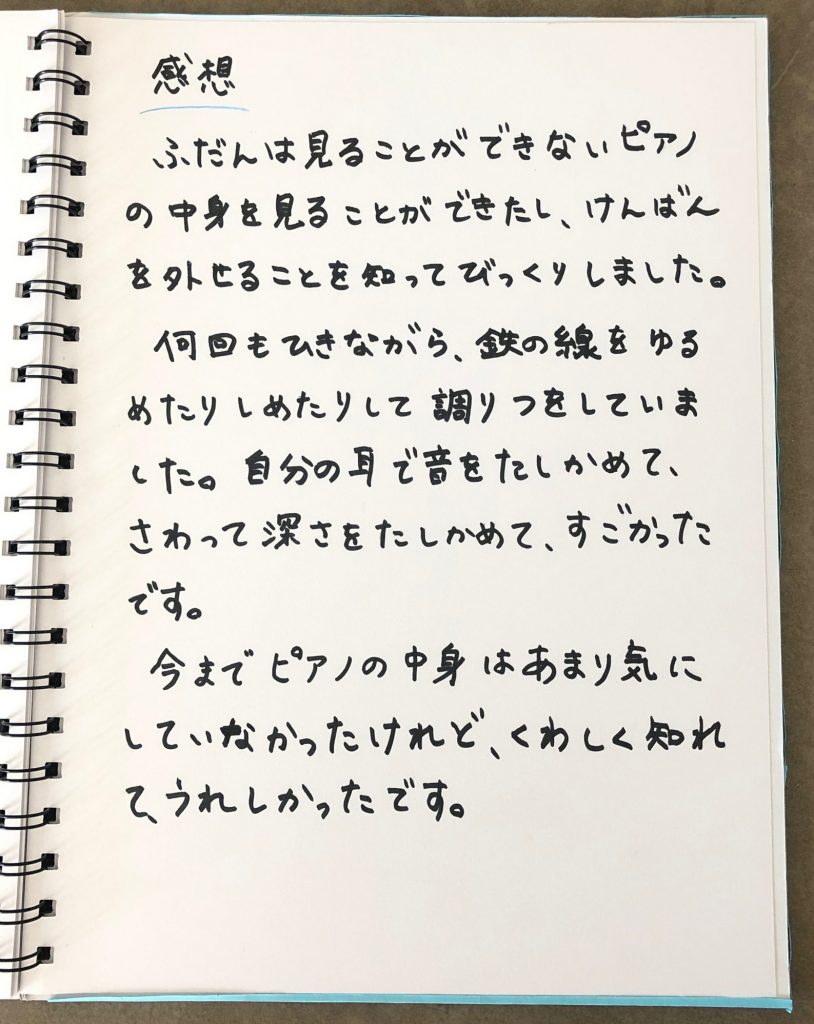 感想
ふだんは見ることができないピアノ
の中身を見ることができたし、けんばん
を外せることを知ってびっくりしました。
何回もひきながら、鉄の線をゆる
めたりしめたりして調りつをしていま
した。自分の耳で音をたしかめて、
さわって深さをたしかめて、すごかった
です。
今までピアノの中身はあまり気に
していなかったけれど、くわしく知れ
て、うれしかったです。